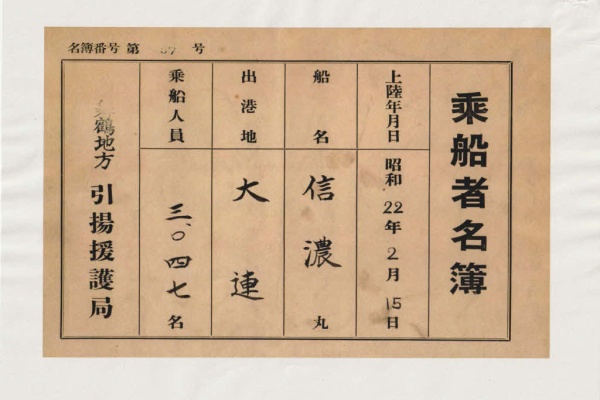 名簿番号 第 号
乘船者名簿
上陸年月日 昭和22年2月15日
船名 信濃丸
出港地 大連
乘船人員 三、〇四七名
鶴地方引揚援護局